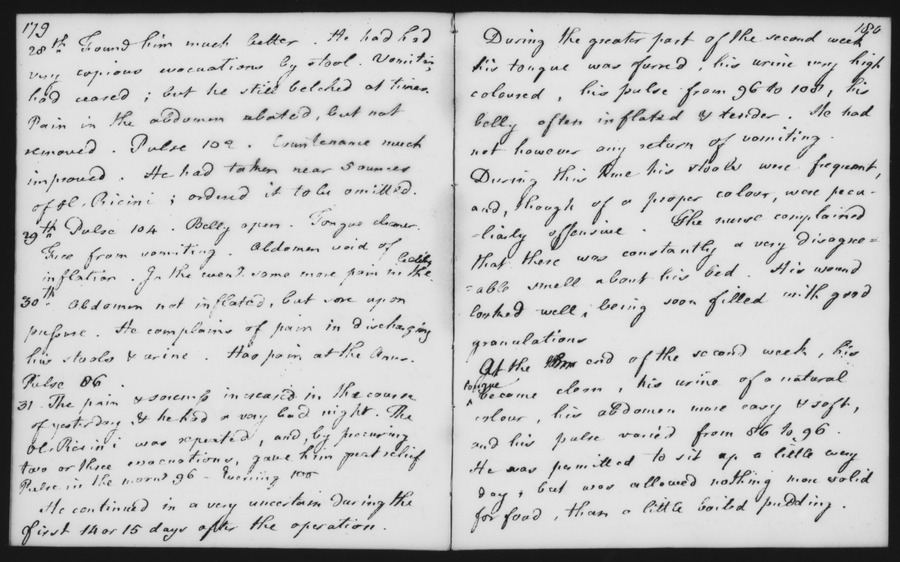 179
28th Found him much better. He had had
very copious evacuations by stool. Vomiting
had ceased; but he still belched at times.
Pain in the abdomen abated, but not
removed. Pulse 102. Countenance much
improved. He had taken near 5 ounces
of Ol. Ricini; ordered it to be omitted.
29th Pulse 104. Belly open. Tongue cleaner.
Free from vomiting. Abdomen void of
inflation. In the even'g some more pain in the belly.
30th Abdomen not inflated, but sore upon
pressure. He complains of pain in discharging
his stools & urine. Has pain at the Anus.
Pulse 86.
31 The pain & soreness increased in the course
of yesterday & he had a very bad night. The
Ol. Ricini was repeated, and, by procuring
two or three evacuations, gave him great relief
Pulse in the morng 96 - Evening 100
He continued in a very uncertain During the
first 14 or 15 days after the operation.
180
During the greater part of the second week
his tongue was furred, his urine very high
coloured, his pulse from 96 to 100, his
belly often inflated & tender. He had
not however any return of vomiting.
During this time his stools were frequent,
and, though of a proper colour, were pecu-
-liarly offensive. The nurse complained
that there was constantly a very disagree=
=able smell about his bed. His wound
looked well; being soon filled with good
granulations
At the end of the second week, his
tongue became clean, his urine of a natural
colour, his abdomen more easy & soft,
and his pulse varied from 86 to 96.
He was permitted to sit up a little every
day, but was allowed nothing more solid
for food, than a little boiled pudding.